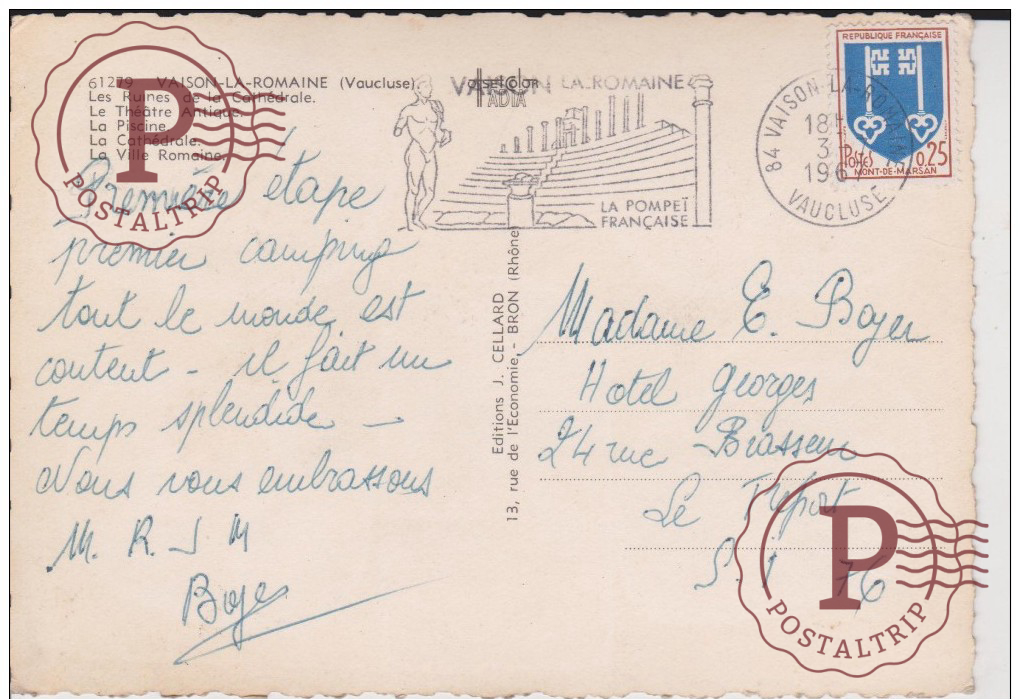 61279 VAISON-LA-ROMAINE (Vaucluse)
Les Ruines de la Cathédrale.
Le Théâtre Antique.
La Piscine.
La Cathédrale.
La Ville Romaine.
VAISON LA ROMAINE
LA POMPEÏ
FRANÇAISE
84 VAISON-LA-ROMAINE
18H
3
196
VAUCLUSE
REPUBLIQUE FRANÇAISE
POSTES 0,25
MONT-DE-MARSAN
Première étape
premier camping
tout le monde est
content - il fait un
temps splendide -
Nous vous embrassons
M. R. J M
Boyer
Editions J. CELLARD
13, rue de l'Economie - BRON (Rhône)
Madame E. Boyer
Hotel Georges
24 rue Brasseur
Le Tréport
S. I 76
P
POSTALTRIP
P
POSTALTRIP